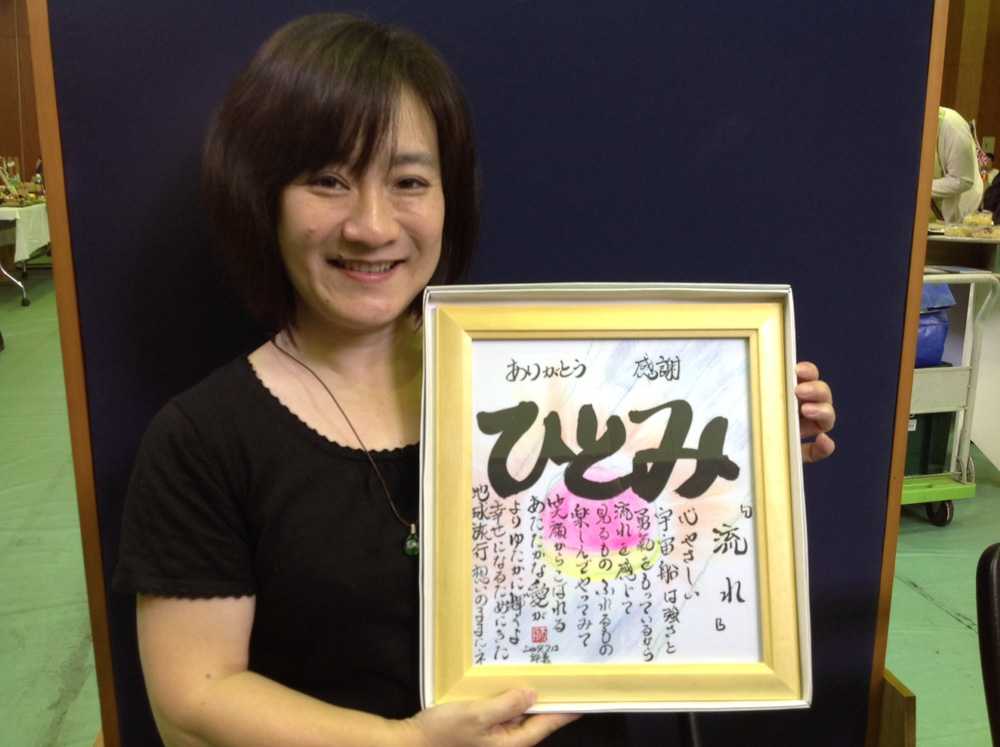 ありがとう　感謝
ひとみ
流れ
心やさしい
宇宙船は強さと
勇気をもっているから
流れを感じて
見るもの ふれるもの
楽しんでやってみて
笑顔からこぼれる
あたたかな愛が
よりゆたかに輝くよ
幸せになるためにきた
地球旅行 想いのままにネ